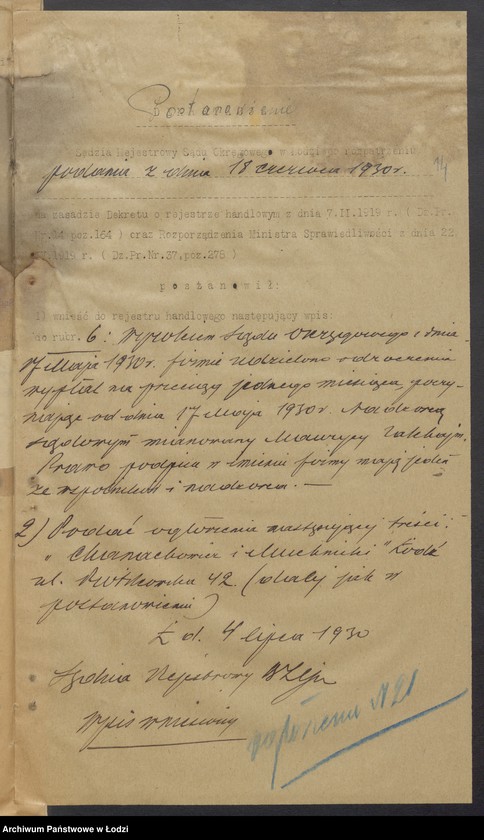 Postanowienie
Sędzia Rejestrowy Sądu Okręgowego w Łodzi po rozpatrzeniu
podania z dnia 18 czerwca 1930r. 14
na zasadzie Dekretu o rejestrze handlowym z dnia 7.II.1919 r. ( Dz.Pr.
Nr.14 poz.164 ) oraz Rozporządzenia Ministra Sprawiedliwości z dnia 22.
1919 r. ( Dz.Pr.Nr.37,poz.278 )
postanowił:
1) wnieść do rejestru handlowego następujący wpis:
do rubr. 6: Wyrokiem Sądu Okręgowego z dnia
17 Maja 1930r. firmie udzielono odroczenia
wypłat na przeciąg jednego miesiąca, poczy-
nając od dnia 17 Maja 1930r. Nadzorcą
sądowym mianowany Maurycy
Prawo podpisu w imieniu firmy mają jeden
ze wspólników i nadzorca. —
2) Podać ogłoszenie następującej treści:
"Chanachowicz i Muchnicki" Łódź
ul. Piotrkowska 42. (dalej jak w
postanowieniu)
Ł d. 4 lipca 1930
Sędzia Rejestrowy
Wpis wniesiony
N 21
Archiwum Państwowe w Łodzi